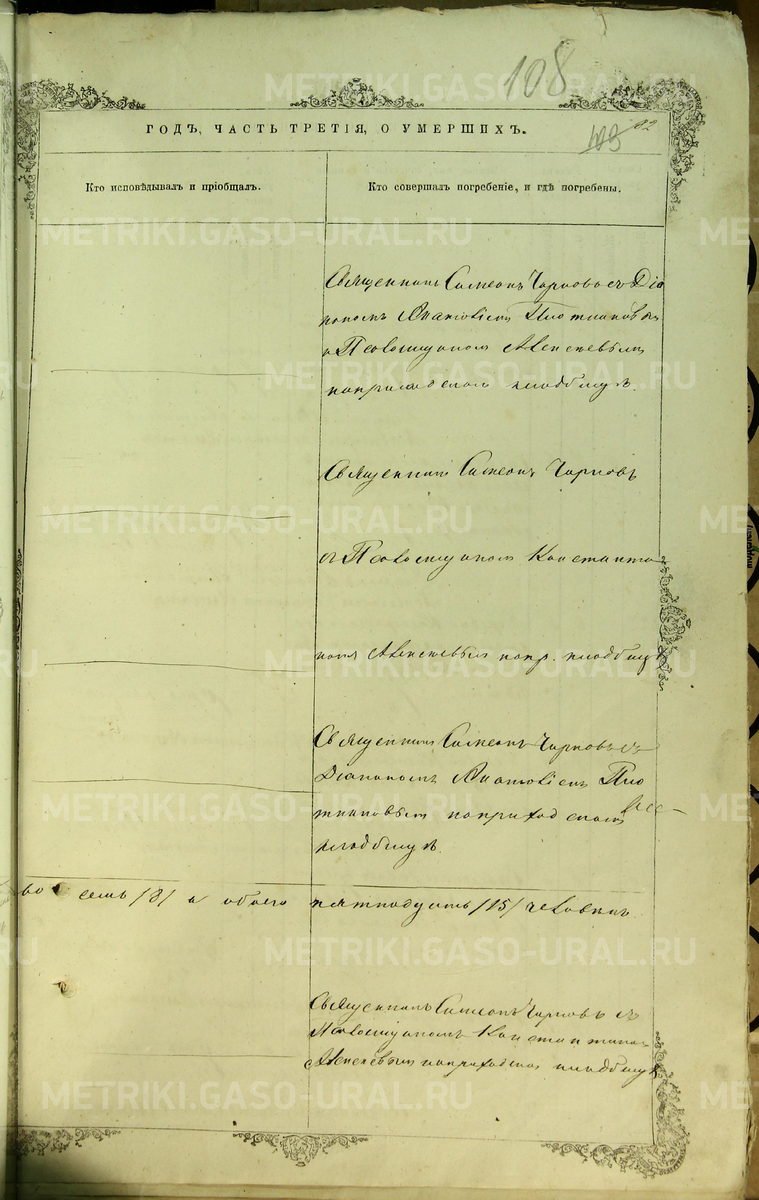 108
103
82
ГОДЪ, ЧАСТЬ ТРЕТІЯ, О УМЕРШИХЪ.
Кто исповѣдывалъ и пріобщалъ.
Кто совершалъ погребеніе, и гдѣ погребены.
Священникъ Симеонъ Чирковъ съ Діа
кономъ Плотниковы
и Псаломщикомъ Алексеевымъ
на приходскомъ кладбищѣ.
Священникъ Симеонъ Чирковъ
съ Псаломщикомъ Константи
номъ Алексеевымъ на пр. кладбищѣ
Священникъ Симеонъ Чирковъ съ
Діакономъ Пло
тниковымъ на приходскомъ
кладбищѣ.
восемь /8/ а обоего пятнадцать /15/ человекъ
Священникъ Симеонъ Чирковъ съ
Псаломщикомъ Константино
Алексеевымъ на приходскомъ кладбищѣ
METRIKI.GASO-URAL.RU